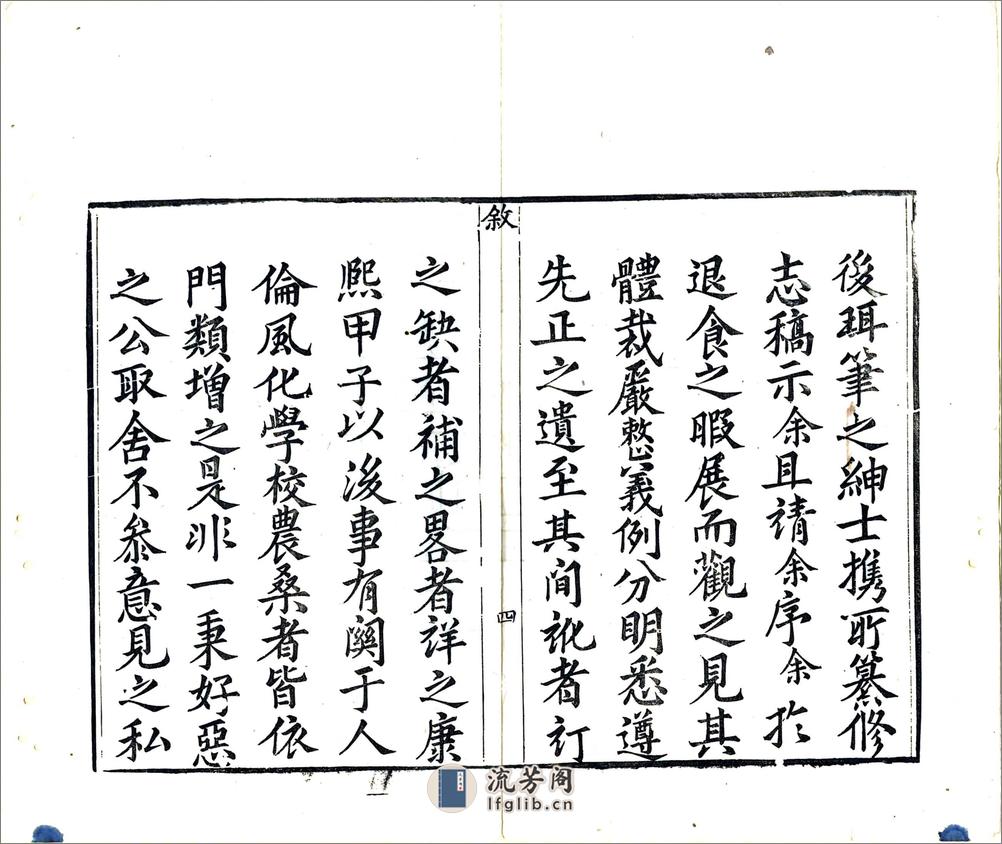 後珥筆之紳士攜所纂修
志稿示余且請余序余扵
退食之暇展而觀之見其
體裁嚴整義例分明悉遵
先正之遺至其间訛者訂
敘
四
之缺者補之畧者詳之康
熈甲子以後事有闗于人
倫風化學校農桑者皆依
門類增之是非一秉好惡
之公取舍不叅意見之私
流芳阁
lfglib.cn